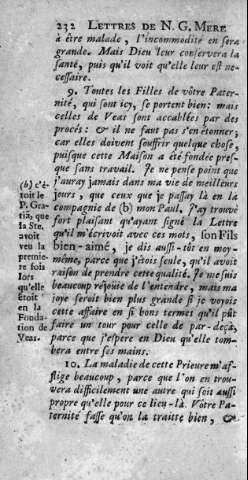 232 LETTRES DE N. G. MERE
à être malade, l'incommodité en sera
grande. Mais Dieu leur conservera la
santé, puis qu'il voit qu'elle leur est ne-
cessaire.
9. Toutes les Filles de vôtre Pater-
nité, qui sont icy, se portent bien: mais
celles de Veas sont accablées par des
procés: & il ne faut pas s'en étonner;
car elles doivent souffrir quelque chose,
puisque cette Maison a été fondée pres-
que sans travail. Je ne pense point que
j'auray jamais dans ma vie de meilleurs
jours, que ceux que je passay là en la
compagnie de (b) mon Paul. J'ay trouvé
fort plaisant qu'ayant signé la Lettre
qu'il m'écrivoit avec ces mots, son Fils
bien-aimé, je dis aussi-tôt en moy-
même, parce que j'étois seule, qu'il avoit
raison de prendre cette qualité. Je me suis
beaucoup réjouïe de l'entendre, mais ma
joye seroit bien plus grande si je voyois
cette affaire en si bons termes qu'il pût
faire un tour pour celle de par-deçà,
parce que j'espere en Dieu qu'elle tom-
bera entre ses mains.
10. La maladie de cette Prieure m'af-
flige beaucoup, parce que l'on en trou-
vera difficilement une autre qui soit aussi
propre qu'elle pour ce lieu-là. Vôtre Pa-
ternité fasse qu'on la traitte bien, &
(b) c'é-
toit le
P. Gra-
tiâ, que
la Ste.
avoit
veu la
premie-
re fois
lors
qu'elle
étoit
en la
Fonda-
tion de
Veas.